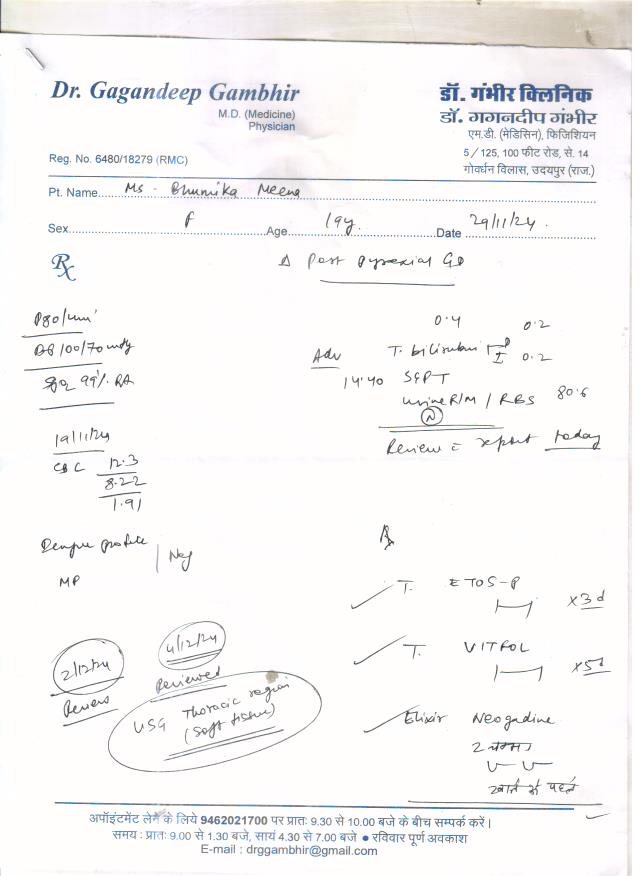 Dr. Gagandeep Gambhir
M.D. (Medicine)
Physician
Reg. No. 6480/18279 (RMC)
डॉ. गंभीर क्लिनिक
डॉ. गगनदीप गंभीर
एम.डी. (मेडिसिन), फिजिशियन
5/125, 100 फीट रोड, से. 14
गोवर्धन विलास, उदयपुर (राज.)
Pt. Name Ms - Bhumika Meena
Sex F Age 19y. Date 29/11/24.
Rx
Δ Post Pyrexial
P80/min
100/70 mmHg
99% RA
19/11/24
CBC 12.3
8.22
1.91
Dengue profile
MP
Neg
2/12/24
Review
4/12/24
Reviewed
USG Thoracic region
(Soft tissue)
0.4 0.2
Adv T. bilirubin D I 0.2
14.40 SGPT
urine R/M / RBS 80.6
N
Review = report today
Rx
T. ETOS-P
x3d
T. VITFOL
x5d
Elixir Neogadine
2 चम्मच
खाने से पहले
अपॉइंटमेंट लेने के लिये 9462021700 पर प्रातः 9.30 से 10.00 बजे के बीच सम्पर्क करें।
समय : प्रातः 9.00 से 1.30 बजे, सायं 4.30 से 7.00 बजे ● रविवार पूर्ण अवकाश
E-mail : drggambhir@gmail.com